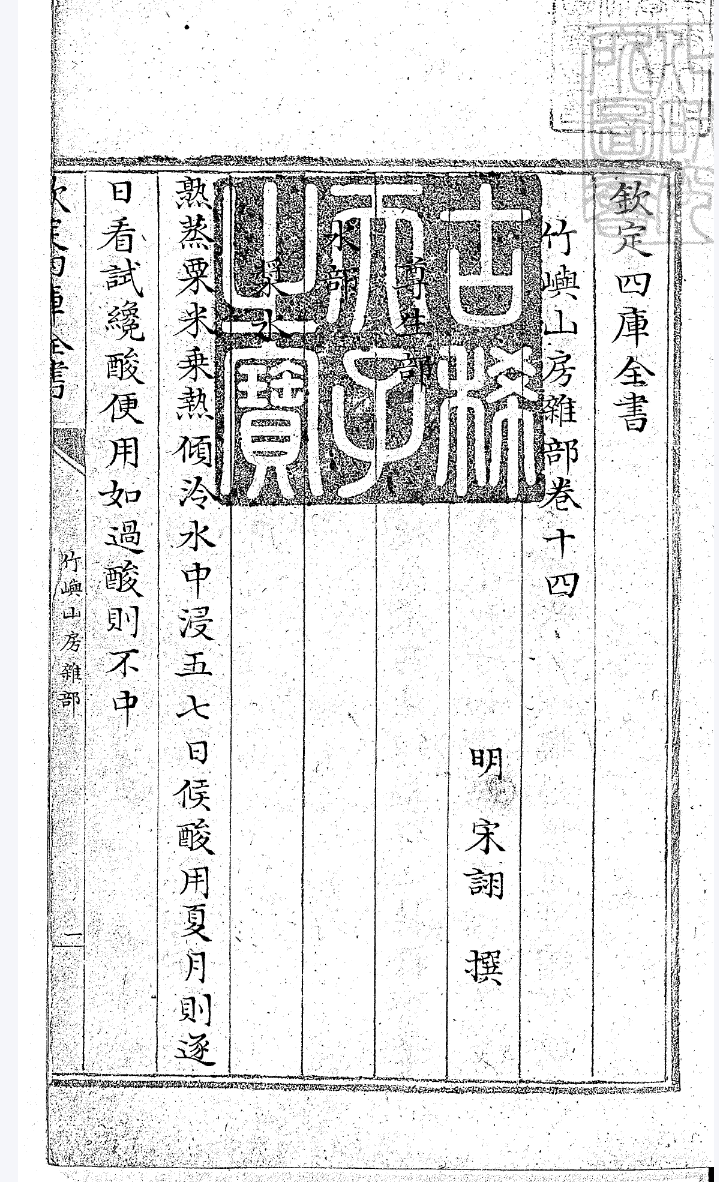 欽定四庫全書
竹嶼山房雜部卷十四
明 宋詡 撰
尊生部
水部
漿水
熟蒸粟米乘熱傾冷水中浸五七日候酸用夏月則逐
日看試纔酸便用如過酸則不中
欽定四庫全書
竹嶼山房雜部
一
古稀天子之寶